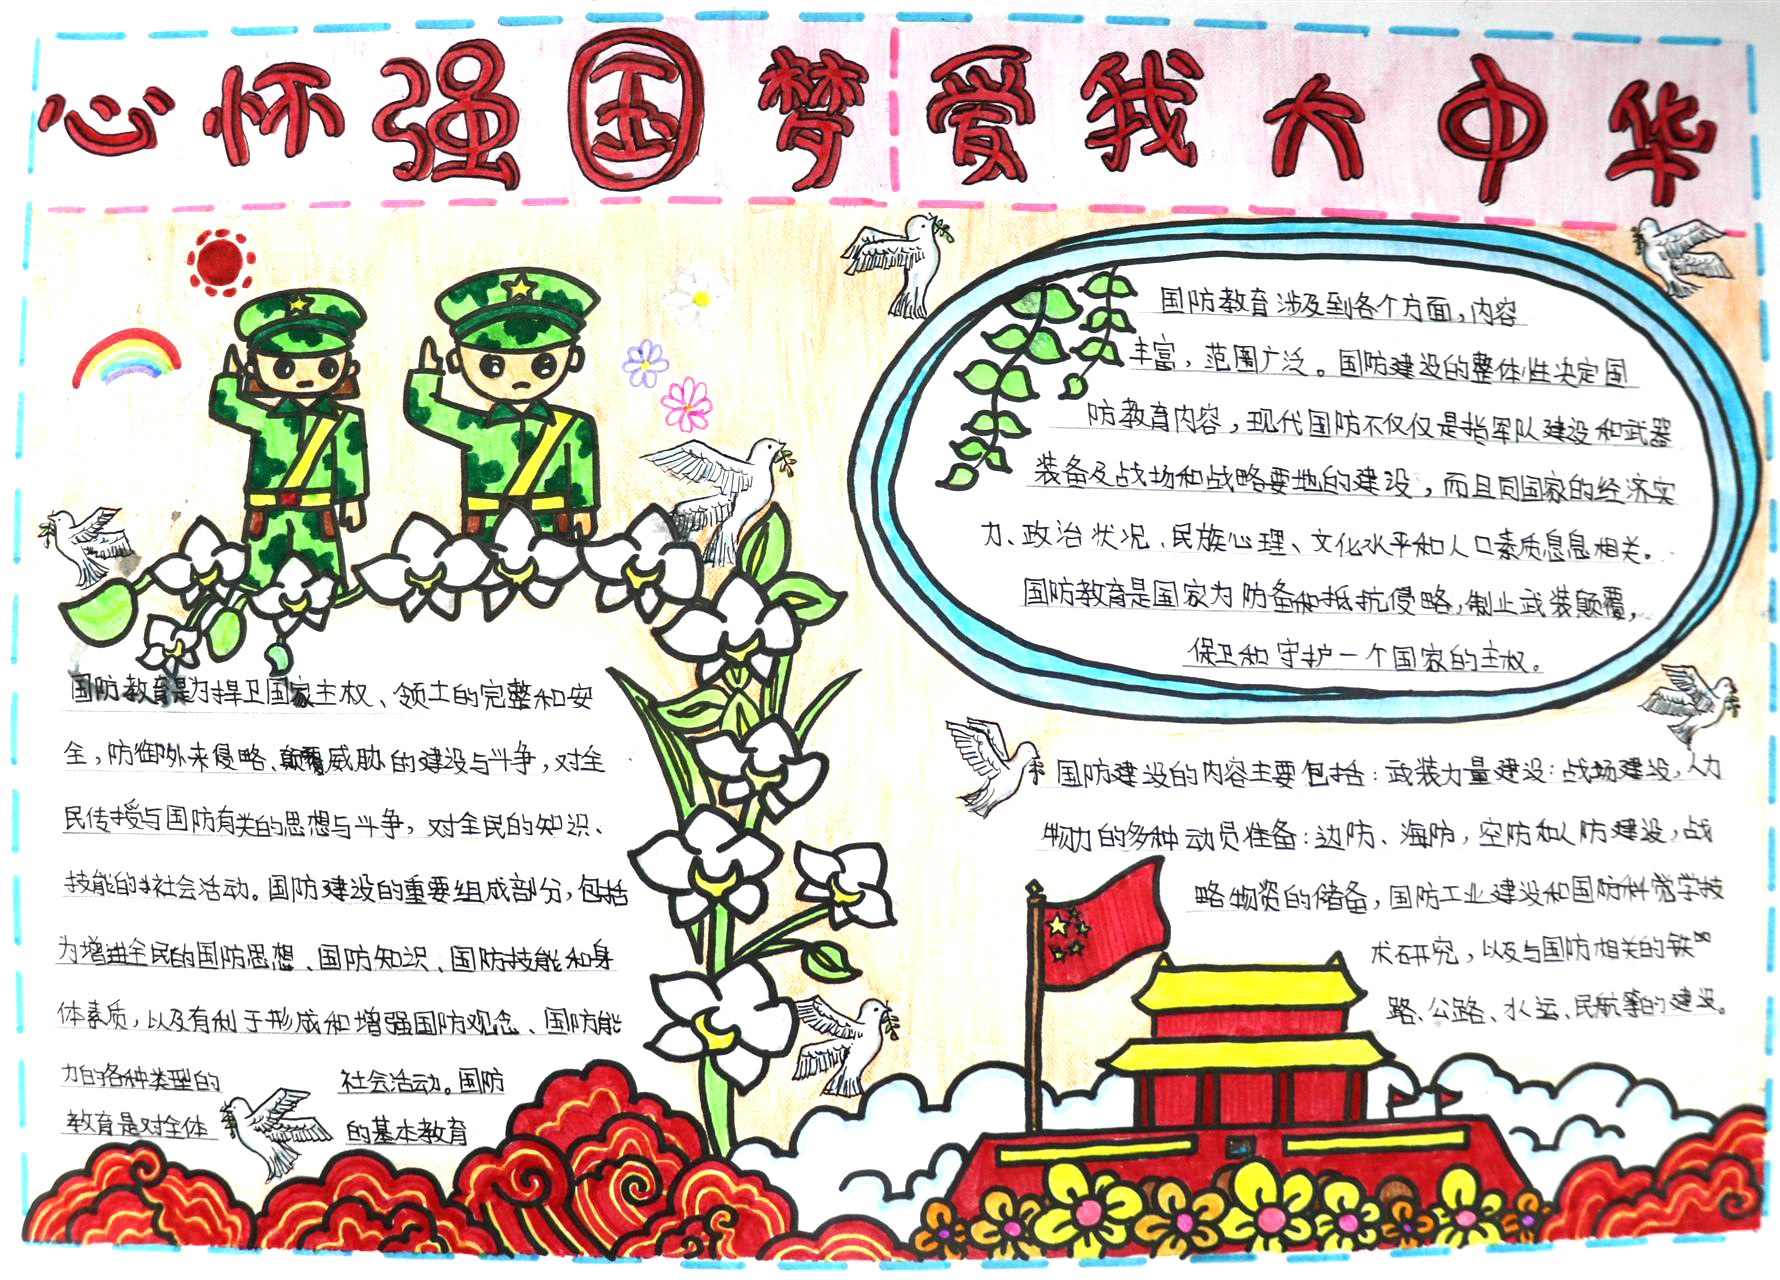 心怀强国梦 爱我大中华
国防教育是为捍卫国家主权、领土的完整和安
全，防御外来侵略、颠覆威胁的建设与斗争，对全
民传授与国防有关的思想与斗争，对全民的知识、
技能的社会活动。国防建设的重要组成部分，包括
为增进全民的国防思想、国防知识、国防技能和身
体素质，以及有利于形成和增强国防观念、国防能
力的各种类型的 社会活动。国防
教育是对全体 的基本教育
国防教育涉及到各个方面，内容
丰富，范围广泛。国防建设的整体性决定国
防教育内容，现代国防不仅仅是指军队建设和武器
装备及战场和战略要地的建设，而且同国家的经济实
力、政治状况、民族心理、文化水平和人口素质息息相关。
国防教育是国家为防备和抵抗侵略，制止武装颠覆，
保卫和守护一个国家的主权。
国防建设的内容主要包括：武装力量建设：战场建设，人力
物力的多种动员准备：边防、海防，空防和人防建设，战
略物资的储备，国防工业建设和国防科学技
术研究，以及与国防相关的铁
路、公路、水运、民航等的建设。